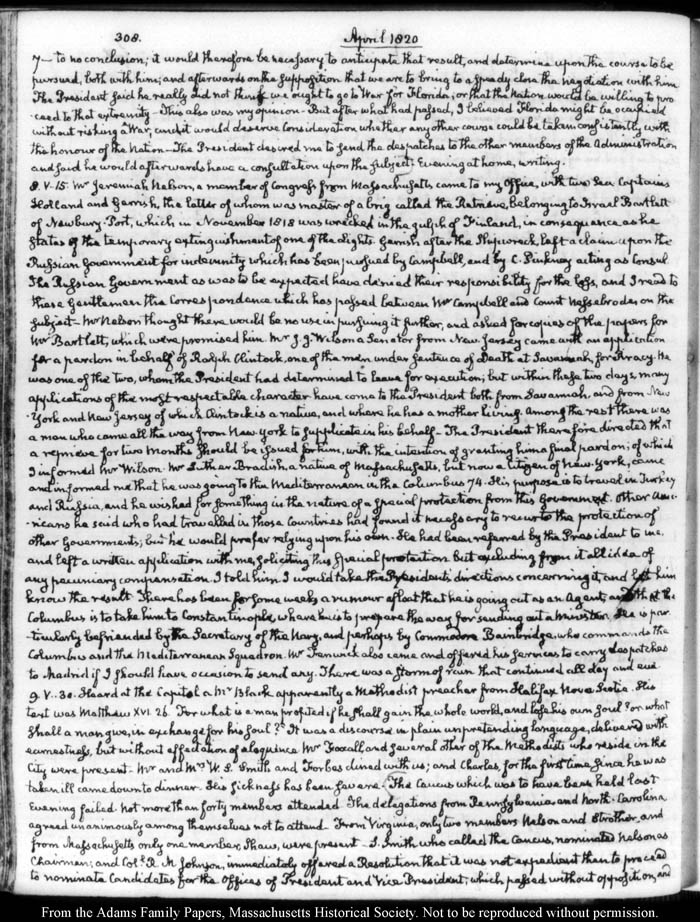 308.
April 1820
7— to no conclusion; it would therefore be necessary to anticipate that result, and determine upon the course to be
pursued, both with him; and afterwards on the supposition that we are to bring to a speedy close the negotiation with him
The President said he really did not think we ought to go to War for Florida; or that the Nation would be willing to pro
-ceed to that extremity— This also was my opinion— But after what had passed, I believed Florida might be occupied
without risking a War, and it would deserve consideration whether any other course could be taken consistently with
the honour of the Nation— The President desired me to send the despatches to the other members of the Administration
and said he would afterwards have a consultation upon the subject. Evening at home, writing.
8. V. 15. Mr Jeremiah Nelson, a member of Congress from Massachusetts came to my Office, with two Sea Captains
Holland and Gerrish, the latter of whom was master of a brig called the Retrieve, belonging to Israel Bartlett
of Newbury-Port, which in November 1818 was wrecked in the gulph of Finland, in consequence as he
states of the temporary extinguishment of one of the Lights. Gerrish after the Shipwreck, left a claim upon the
Russian Government for indemnity which has been pursued by Campbell, and by C. Pinkney acting as Consul
The Russian Government as was to be expected have denied their responsibility for the loss, and I read to
these Gentlemen the correspondence which has passed between Mr Campbell and Count Nesselrode, on the
subject— Mr Nelson thought there would be no use in pursuing it further, and asked for copies of the papers for
Mr Bartlett, which were promised him. Mr J. J. Wilson a Senator from New Jersey came with an application
for a pardon in behalf of Ralph Clintock, one of the men under sentence of Death at Savannah, for Piracy. He
was one of the two, whom the President had determined to leave for execution; but within these two days, many
applications of the most respectable character have come to the President both from Savannah, and from New
York and New Jersey of which Clintock is a native, and where he has a mother living. Among the rest there was
a man who came all the way from New York to supplicate in his behalf— The President therefore directed that
a reprieve for two months should be issued for him, with the intention of granting him a final pardon; of which
I informed Mr Wilson. Mr Luther Bradish, a native of Massachusetts, but now a Citizen of New-York, came
and informed me that he was going to the Mediterranean in the Columbus 74. His purpose is to travel in Turkey
and Russia, and he wished for something in the nature of a special protection from this Government. Other Ame-
-ricans he said who had travelled in those Countries had found it necessary to recur to the protection of
other Governments; but he would prefer relying upon his own. He had been referred by the President to me.
and left a written application with me, soliciting this special protection but excluding from it all idea of
any pecuniary compensation. I told him I would take the President's directions concerning it, and let him
know the result. There has been for some weeks a rumour afloat that he is going out as an Agent, and that the
Columbus is to take him to Constantinople, where he is to prepare the way for sending out a Minister. He is par
-ticularly befriended by the Secretary of the Navy, and perhaps by Commodore Bainbridge, who commands the
Columbus and the Mediterranean Squadron. Mr Fenwick also came and offered his services to carry despatches
to Madrid if I should have occasion to send any. There was a storm of rain that continued all day and eve
9. V. 30. Heard at the Capitol a Mr Black apparently a Methodist preacher from Halifax Nova Scotia. His
text was Matthew XVI. 26. For what is a man profited if he shall gain the whole world, and lose his own soul? or what
shall a man give, in exchange for his soul? It was a discourse in plain unpretending language, delivered with
earnestness, but without affectation of eloquence. Mr Foxall, and several other of the Methodists who reside in the
City were present. Mr and Mrs W. S. Smith and Forbes dined with us; and Charles, for the first time, since he was
taken ill came down to dinner. His sickness has been severe. The Caucus which was to have been held last
Evening failed. Not more than forty members attended. The delegations from Pennsylvania and North-Carolina
agreed unanimously among themselves not to attend— From Virginia, only two members Nelson and Strother, and
from Massachusetts only one member, Shaw, were present— S. Smith who called the Caucus, nominated Nelson as
Chairman; and Col. R. M. Johnson, immediately offered a Resolution that it was not expedient then to proceed
to nominate Candidates for the Offices of President and Vice President, which passed without opposition, and
From the Adams Family Papers, Massachusetts Historical Society. Not to be reproduced without permission.